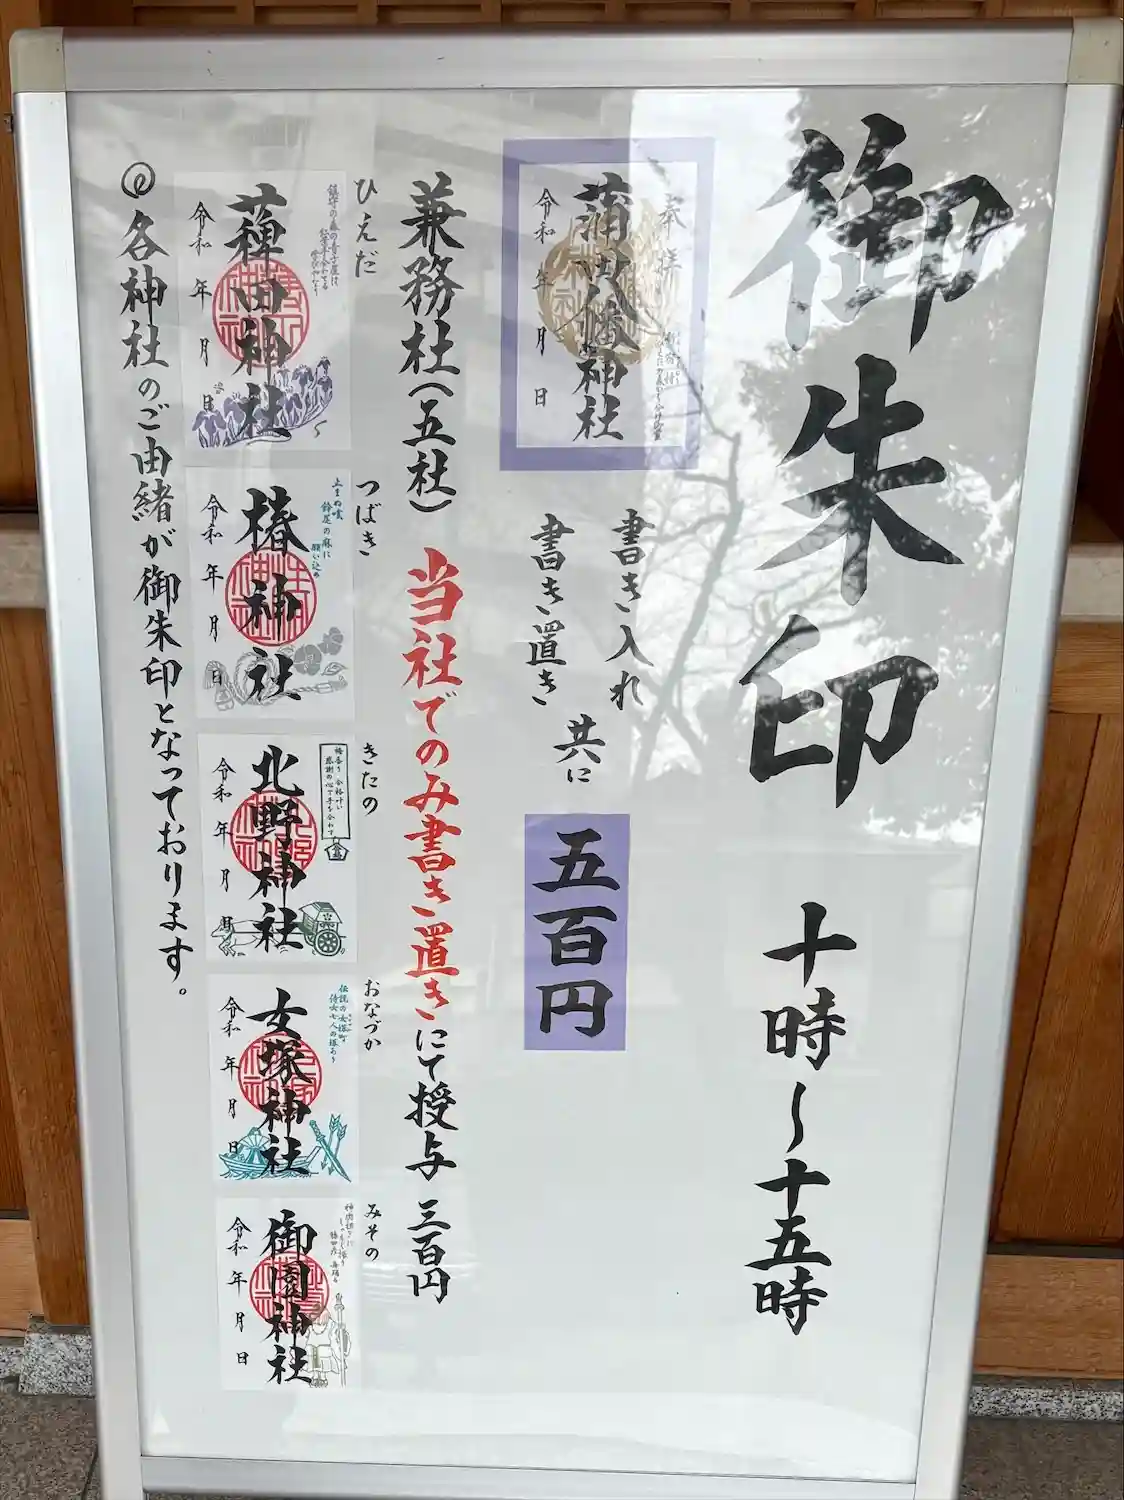 御朱印 十時〜十五時
奉拝
蒲田八幡神社
令和 年 月 日
書き入れ
書き置き
共に
五百円
兼務社(五社) 当社でのみ書き置きにて授与 三百円
ひえだ
薭田神社
令和 年 月 日
つばき
椿神社
令和 年 月 日
きたの
梅香り 合格叶い
感謝の心で手を合わす
北野神社
令和 年 月 日
おなづか
伝説の女塚町
侍女七人の塚あり
女塚神社
令和 年 月 日
みその
御園神社
令和 年 月 日
各神社のご由緒が御朱印となっております。